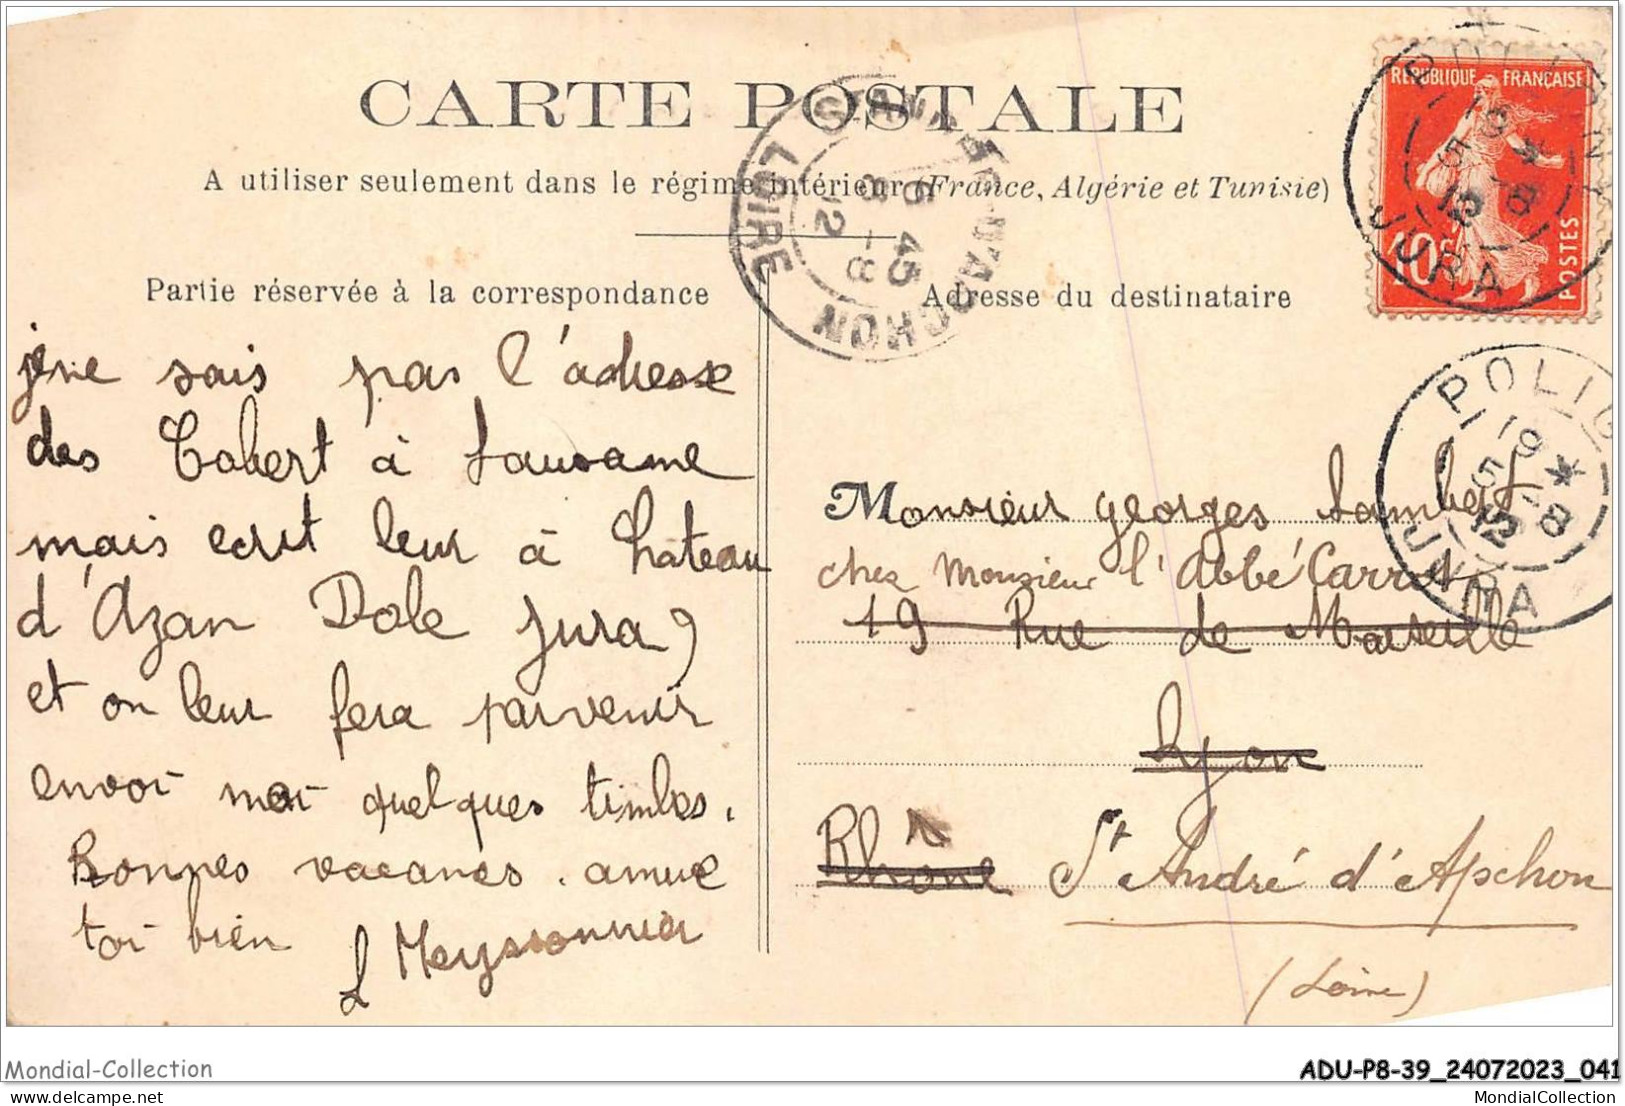 CARTE POSTALE
A utiliser seulement dans le régime intérieur (France, Algérie et Tunisie)
Partie réservée à la correspondance
je ne sais pas l'adresse
des Tabert à Lausanne
mais ecrit leur à Château
d'Azan Dole Jura)
et on leur fera parvenir
envoi moi quelques timbres.
Bonnes vacances. amuse
toi bien
L Meyssonnier
Adresse du destinataire
Monsieur georges Lambert
chez Monsieur l'Abbé Carrot
19 Rue de Marseille
Lyon
Rhône
St André d'Apchon
(Loire)
REPUBLIQUE FRANÇAISE
10
POSTES
POLIG
19 *
5 -8
12
JURA
JURA
19 *
5 -8
12
ST ANDRÉ D'APCHON
LOIRE
6 45
8 -8
12
Mondial-Collection
ADU-P8-39_24072023_041
delcampe.net
MondialCollection